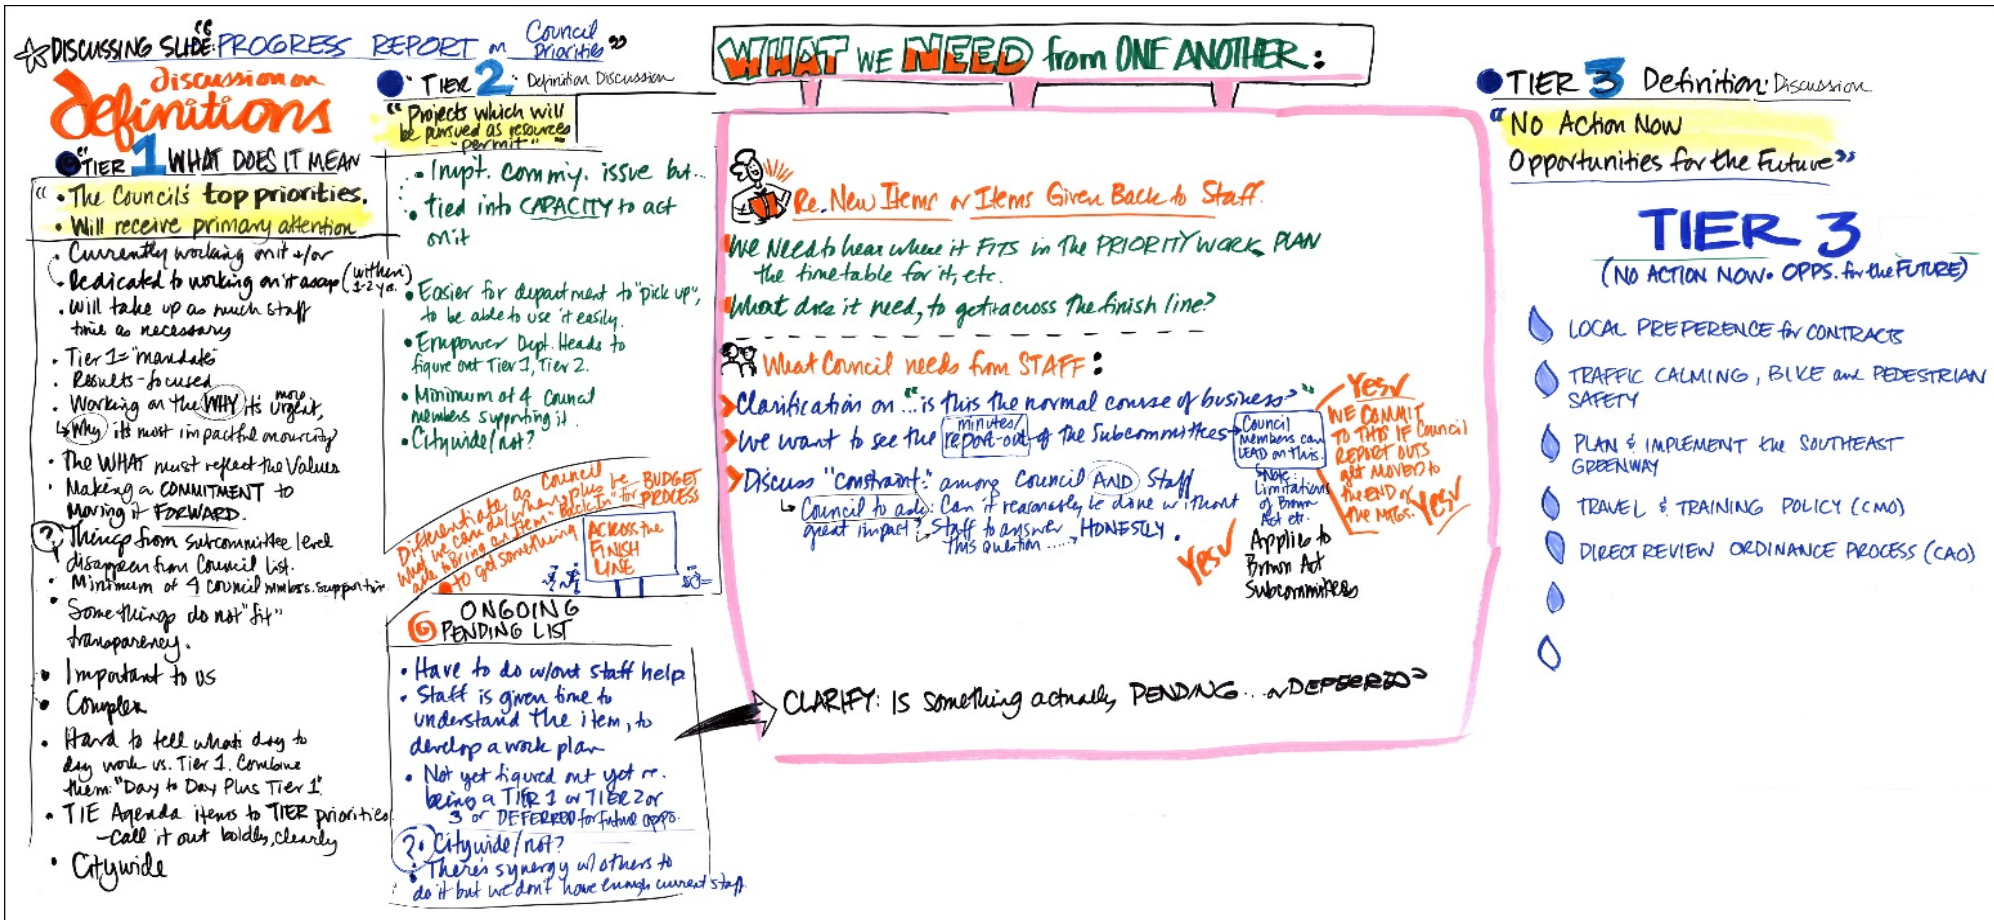 ☆ DISCUSSING SLIDE: "PROGRESS REPORT on Council Priorities"
discussion on
definitions
TIER 1 WHAT DOES IT MEAN
"• The Council's top priorities.
• Will receive primary attention
• Currently working on it +/or
• Dedicated to working on it asap (within 1-2 yrs.)
• Will take up as much staff
time as necessary
• Tier 1 = "mandate"
• Results-focused
• Working on the WHY it's more urgent,
↳ Why its most impactful on our city
• The WHAT must reflect the Values
• Making a COMMITMENT to
Moving it FORWARD.
? Things from subcommittee level
disappear from Council List.
• Minimum of 4 council mmbrs. supporting
• Some things do not "fit"
transparency.
• Important to us
• Complex
• Hard to tell what's day to
day work vs. Tier 1. Combine
them: "Day to Day Plus Tier 1"
• TIE Agenda items to TIER priorities
- Call it out boldly, clearly
• Citywide
TIER 2: Definition Discussion
"Projects which will
be pursued as resources
permit"
• Impt. commy. issue but...
• tied into CAPACITY to act
on it
• Easier for department to "pick up",
to be able to use it easily.
• Empower Dept. Heads to
figure out Tier 1, Tier 2.
• Minimum of 4 Council
members supporting it.
• Citywide/not?
Differentiate as Council
what we can do/when plus be
able to Bring an Item "Back In" for BUDGET PROCESS
• to get something
ACROSS the
FINISH
LINE
ONGOING
PENDING LIST
• Have to do w/out staff help
• Staff is given time to
understand the item, to
develop a work plan
• Not yet figured out yet re.
being a TIER 1 or TIER 2 or
3 or DEFERRED for future opps.
? • Citywide/not?
• There's synergy w/others to
do it but we don't have enough current staff.
WHAT WE NEED from ONE ANOTHER:
Re. New Items or Items Given Back to Staff.
We Need to hear where it FITS in the PRIORITY WORK PLAN
the timetable for it, etc.
What does it need, to get across the finish line?
What Council needs from STAFF:
Clarification on "...is this the normal course of business?"
We want to see the minutes/report-out of the Subcommittees →
Council
members can
LEAD on this.
Note
Limitations
of Brown
Act etc.
Applies to
Brown Act
Subcommittees
Yes✓
WE COMMIT
TO THIS IF Council
REPORT OUTS
get MOVED to
the END of
the MTGS. YES✓
Discuss "Constraint": among Council AND Staff
↳ Council to ask: Can it reasonably be done without
great impact? ↳ Staff to answer HONESTLY.
This question.....
Yes✓
CLARIFY: IS something actually PENDING... or DEFERRED?
TIER 3 Definition: Discussion
"No Action Now
Opportunities for the Future"
TIER 3
(NO ACTION NOW • OPPS. for the FUTURE)
LOCAL PREFERENCE for CONTRACTS
TRAFFIC CALMING, BIKE and PEDESTRIAN
SAFETY
PLAN & IMPLEMENT the SOUTHEAST
GREENWAY
TRAVEL & TRAINING POLICY (CMO)
DIRECT REVIEW ORDINANCE PROCESS (CAO)